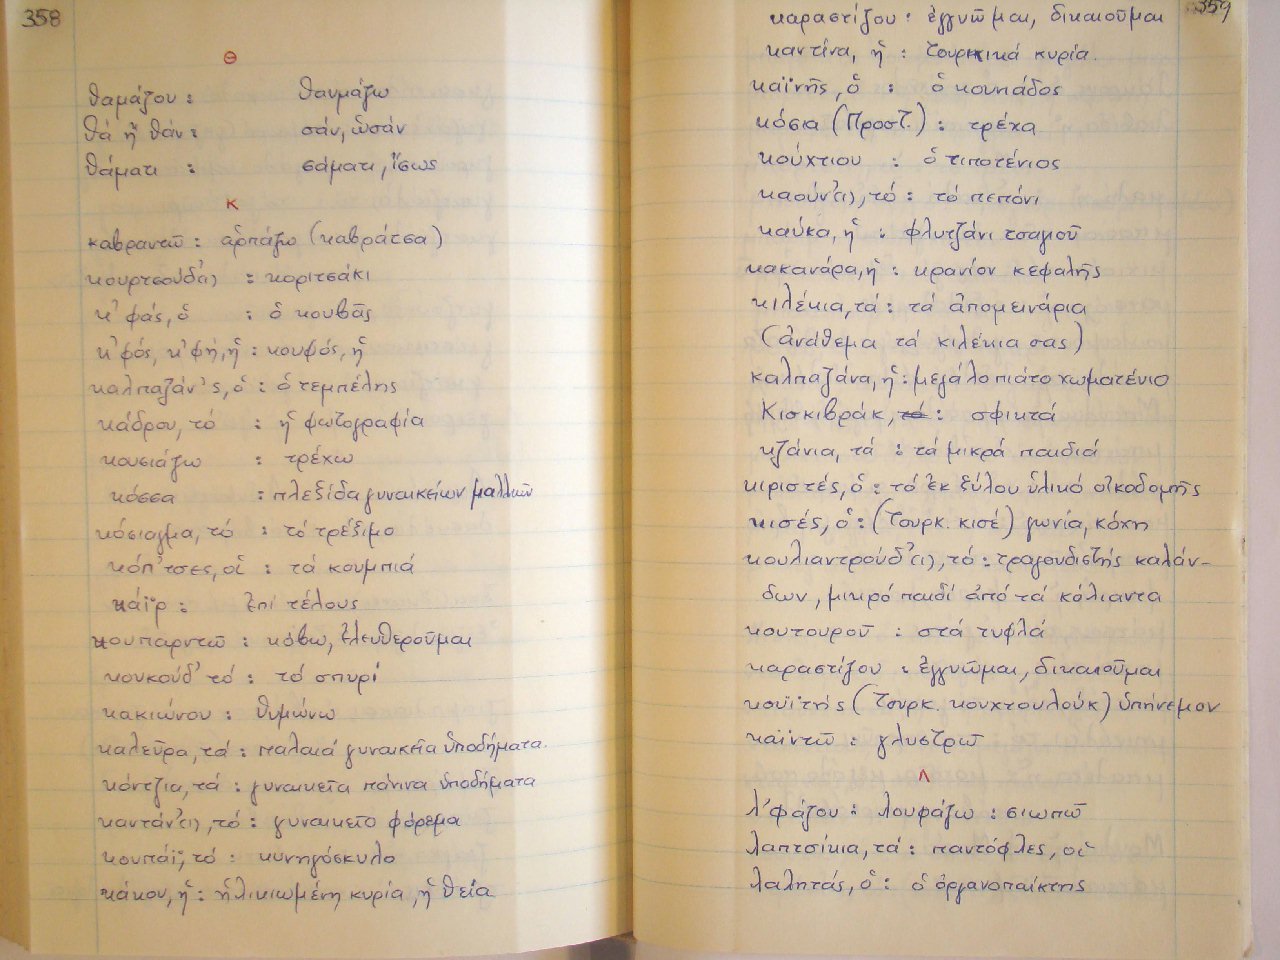 358
Θ
θαμάζου : θαυμάζω
θά ἤ θάν : σάν, ὡσάν
θάματι : σάματι, ἴσως
Κ
καβραντῶ : ἁρπάζω (καβράτσα)
κουρτσούδ'(ι) : κοριτσάκι
κ'φάς, ὁ : ὁ κουβᾶς
κ'φός, κ'φή, ἡ : κουφός, ἡ
καλπαζάν'ς, ὁ : ὁ τεμπέλης
κάδρου, τό : ἡ φωτογραφία
κουσιάζω : τρέχω
κόσσα : πλεξίδα γυναικείων μαλλιῶν
κόσιαγμα, τό : τό τρέξιμο
κόπ'τσες, οἱ : τά κουμπιά
κάϊρ : ἐπί τέλους
κουπαρντῶ : κόβω, ἐλευθεροῦμαι
κουκούδ' τό : τό σπυρί
κακιώνου : θυμώνω
καλεῦρα, τά : παλαιά γυναικεῖα ὑποδήματα.
κόντζια, τά : γυναικεῖα πάνινα ὑποδήματα
καντάν'(ι), τό : γυναικεῖο φόρεμα
κουπάϊ, τό : κυνηγόσκυλο
κάκου, ἡ : ἡλικιωμένη κυρία, ἡ θεία
359
καραστίζου : ἐγγυῶμαι, δικαιοῦμαι
καντίνα, ἡ : τουρκικά κυρία.
κάϊνης, ὁ : ὁ κουνιάδος
κόσια (Προστ.) : τρέχα
κούχτιου : ὁ τιποτένιος
καούν'(ι), τό : τό πεπόνι
καύκα, ἡ : φλυτζάνι τσαγιοῦ
κακανάρα, ἡ : κρανίον κεφαλῆς
κιλέκια, τά : τά ἀπομεινάρια
(ἀνάθεμα τά κιλέκια σας)
καλπαζάνα, ἡ : μεγάλο πιάτο χωματένιο
Κισκιβράκ, τό : σφικτά
κζάνια, τά : τά μικρά παιδιά
κιριστές, ὁ : τό ἐκ ξύλου ὑλικό οἰκοδομῆς
κισές, ὁ : (Τουρκ. κισέ) γωνία, κόχη
κουλιαντρούδ'(ι), τό : τραγουδιστής καλάν-
δων, μικρό παιδί ἀπό τά κόλιαντα
κουτουροῦ : στά τυφλά
καραστίζου : ἐγγυῶμαι, δικαιοῦμαι
κουϊτής (Τουρκ. κουχτουλούκ) ὑπήνεμον
καϊντῶ : γλυστρῶ
Λ
λ'φάζου : λουφάζω : σιωπῶ
λαπτσίκια, τά : παντόφλες, οἱ
λαλητάς, ὁ : ὁ ὀργανοπαίκτης